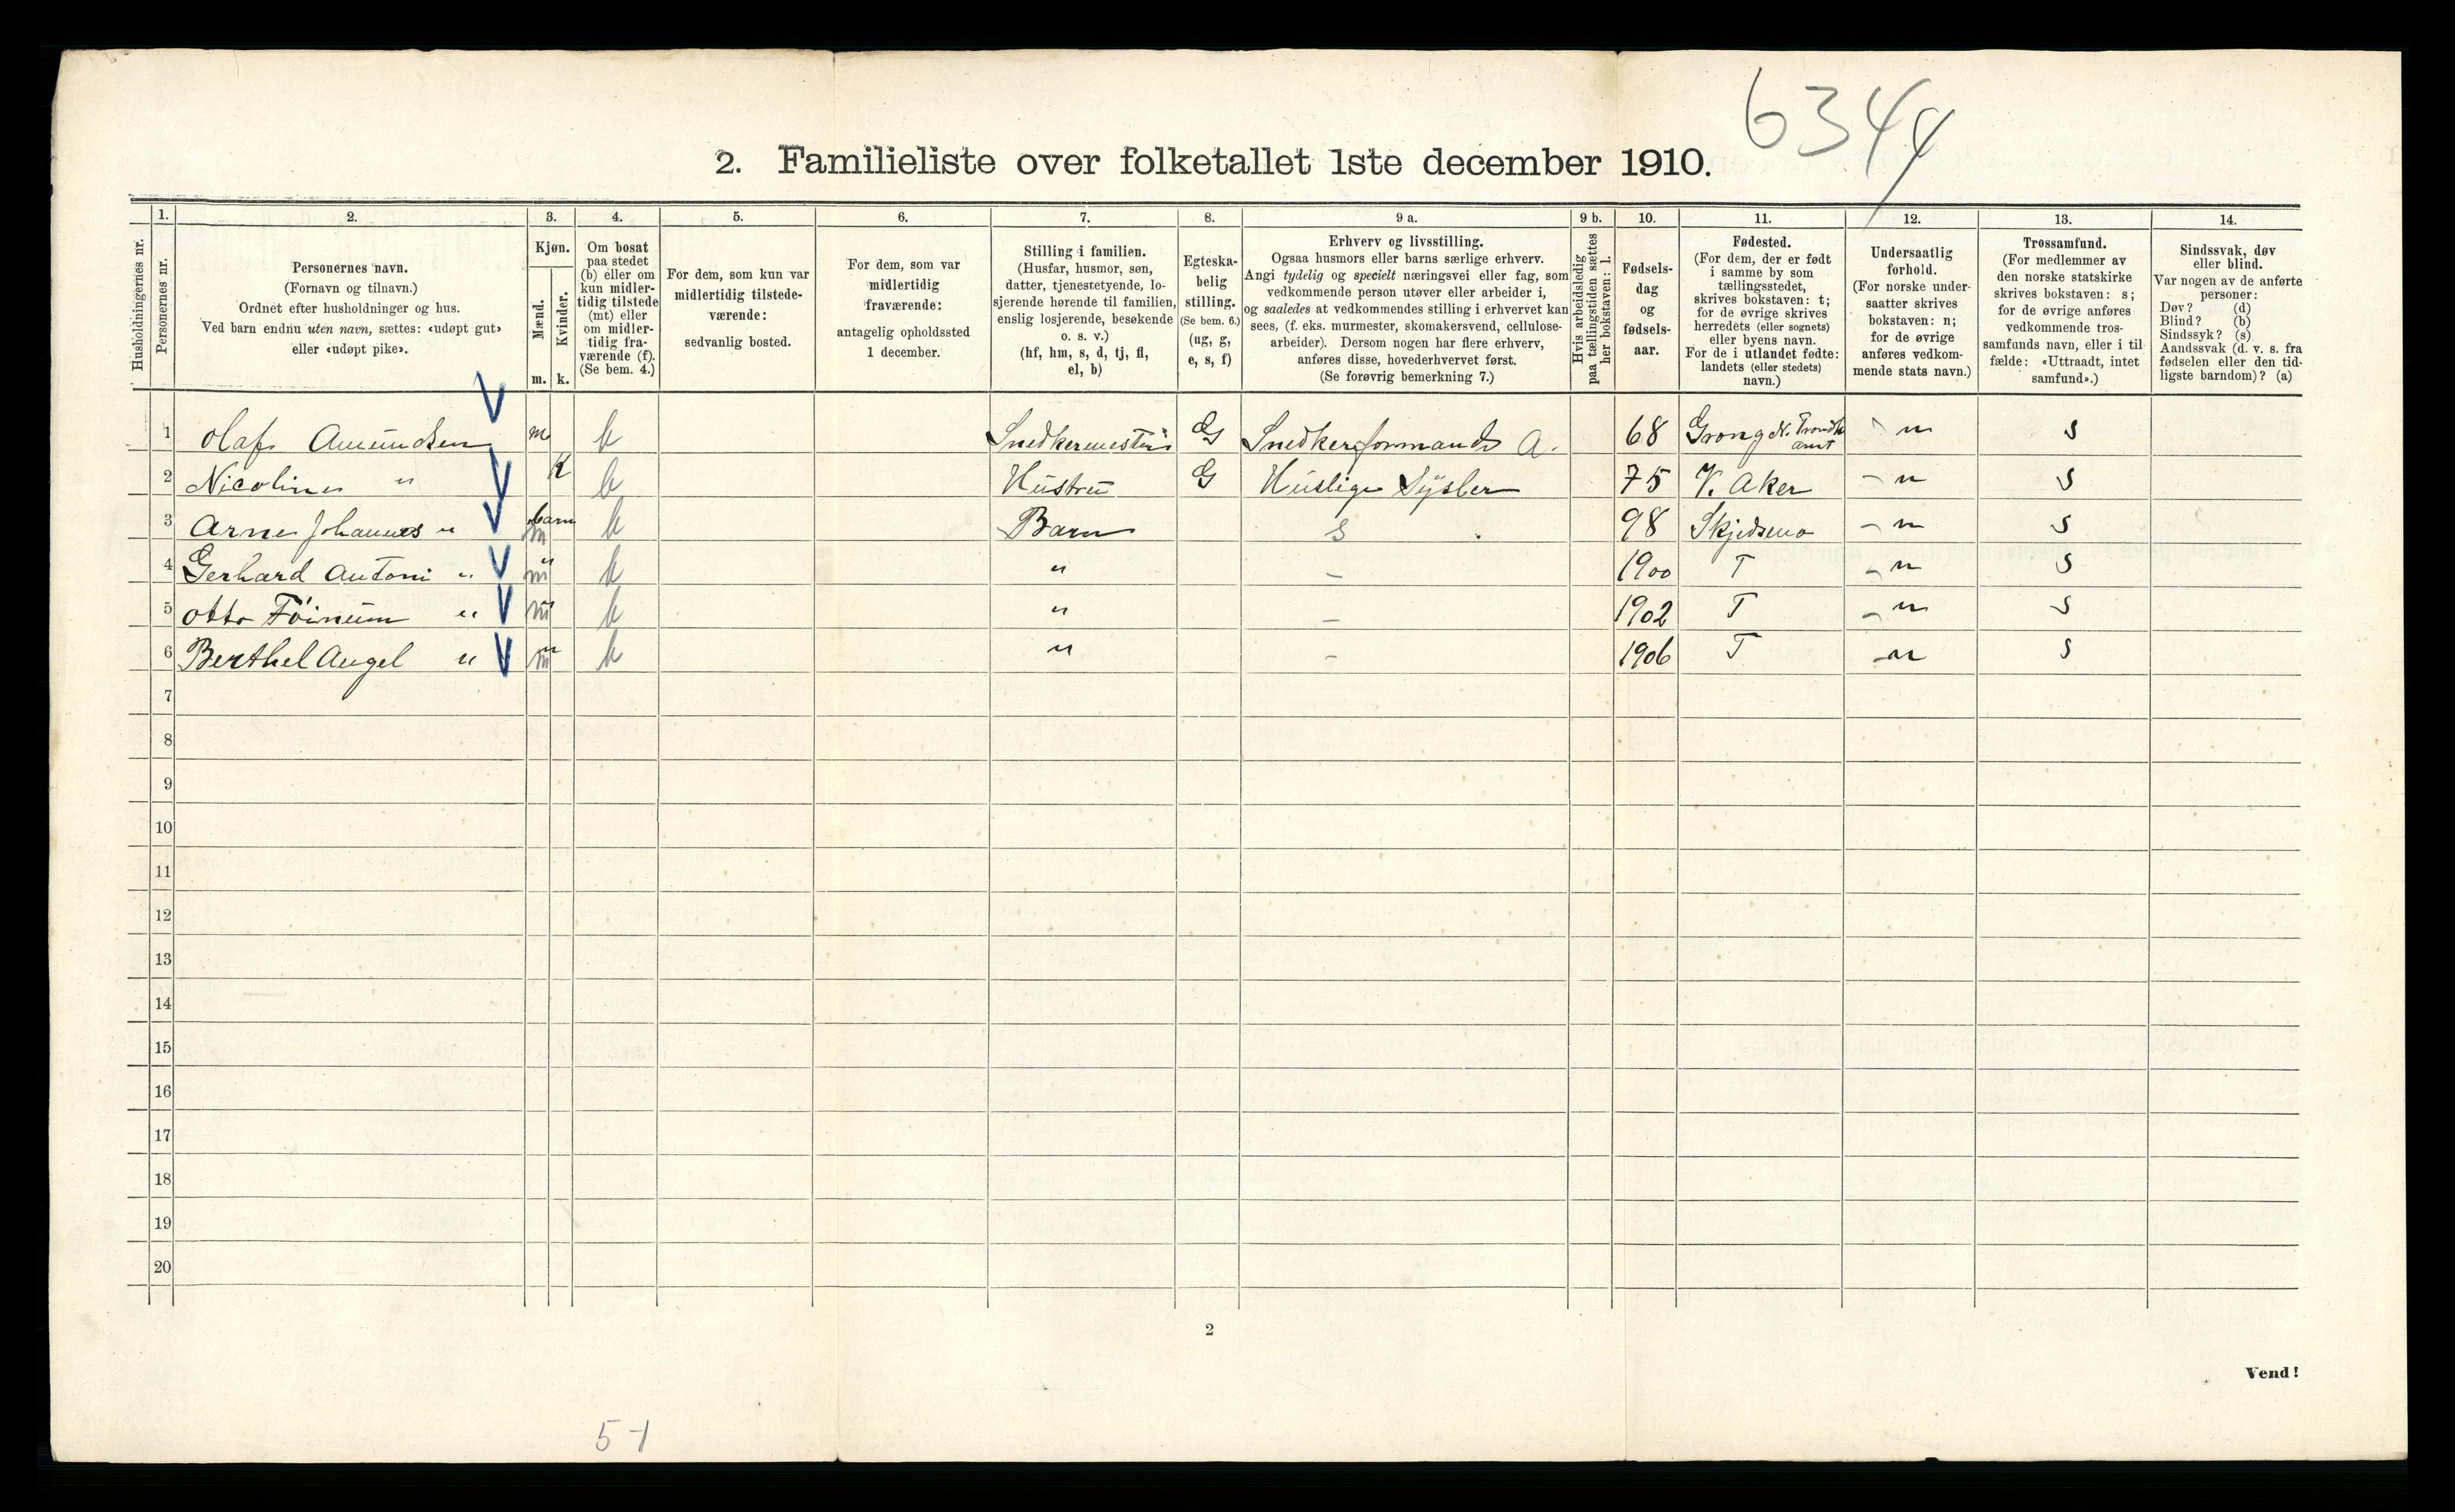 6344
2. Familieliste over folketallet 1ste december 1910.
Husholdningernes nr.
1.
Personernes nr.
2.
Personernes navn.
(Fornavn og tilnavn.)
Ordnet efter husholdninger og hus.
Ved barn endnu uten navn, sættes: «udøpt gut»
eller «udøpt pike».
3.
Kjøn.
Mænd.
Kvinder.
m. k.
4.
Om bosat
paa stedet
(b) eller om
kun midler-
tidig tilstede
(mt) eller
om midler-
tidig fra-
værende (f).
(Se bem. 4.)
5.
For dem, som kun var
midlertidig tilstede-
værende:
sedvanlig bosted.
6.
For dem, som var
midlertidig
fraværende:
antagelig opholdssted
1 december.
7.
Stilling i familien.
(Husfar, husmor, søn,
datter, tjenestetyende, lo-
sjerende hørende til familien,
enslig losjerende, besøkende
o. s. v.)
(hf, hm, s, d, tj, fl,
el, b)
8.
Egteska-
belig
stilling.
(Se bem. 6.)
(ug, g,
e, s, f)
9 a.
Erhverv og livsstilling.
Ogsaa husmors eller barns særlige erhverv.
Angi tydelig og specielt næringsvei eller fag, som
vedkommende person utøver eller arbeider i,
og saaledes at vedkommendes stilling i erhvervet kan
sees, (f. eks. murmester, skomakersvend, cellulose-
arbeider). Dersom nogen har flere erhverv,
anføres disse, hovederhvervet først.
(Se forøvrig bemerkning 7.)
9 b.
Hvis arbeidsledig
paa tællingstiden sættes
her bokstaven: l.
10.
Fødsels-
dag
og
fødsels-
aar.
11.
Fødested.
(For dem, der er født
i samme by som
tællingsstedet,
skrives bokstaven: t;
for de øvrige skrives
herredets (eller sognets)
eller byens navn.
For de i utlandet fødte:
landets (eller stedets)
navn.)
12.
Undersaatlig
forhold.
(For norske under-
saatter skrives
bokstaven: n;
for de øvrige
anføres vedkom-
mende stats navn.)
13.
Trossamfund.
(For medlemmer av
den norske statskirke
skrives bokstaven: s;
for de øvrige anføres
vedkommende tros-
samfunds navn, eller i til-
fælde: «Uttraadt, intet
samfund».)
14.
Sindssvak, døv
eller blind.
Var nogen av de anførte
personer:
Døv? (d)
Blind? (b)
Sindssyk? (s)
Aandssvak (d. v. s. fra
fødselen eller den tid-
ligste barndom)? (a)
1 Olaf Amundsen m b Snedkermester G Snedkerformand A. 68 Grong N. Trondh amt n s
2 Nicoline " K b Hustru G Huslige Sysler 75 V. Aker - n s
3 Arne Johannes " barn m b Barn s 98 Skjedsmo - n s
4 Gerhard Antoni " " m b " - 1900 T - n s
5 Otto " " m b " - 1902 T - n s
6 Berthel Angel " " m b " - 1906 T - n s
7
8
9
10
11
12
13
14
15
16
17
18
19
20
2
Vend!
51